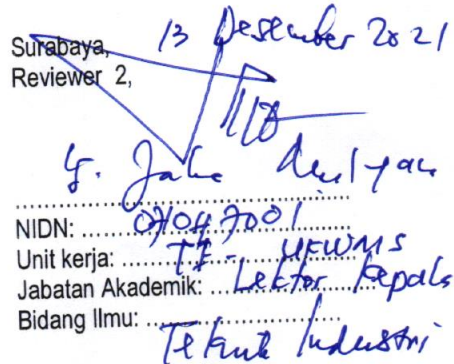 Surabaya, 13 Desember 2021
Reviewer 2,
Y. Jaka Mulyana
NIDN: 07047001
Unit kerja: TI - UKWMS
Jabatan Akademik: Lektor Kepala
Bidang Ilmu: Teknik Industri